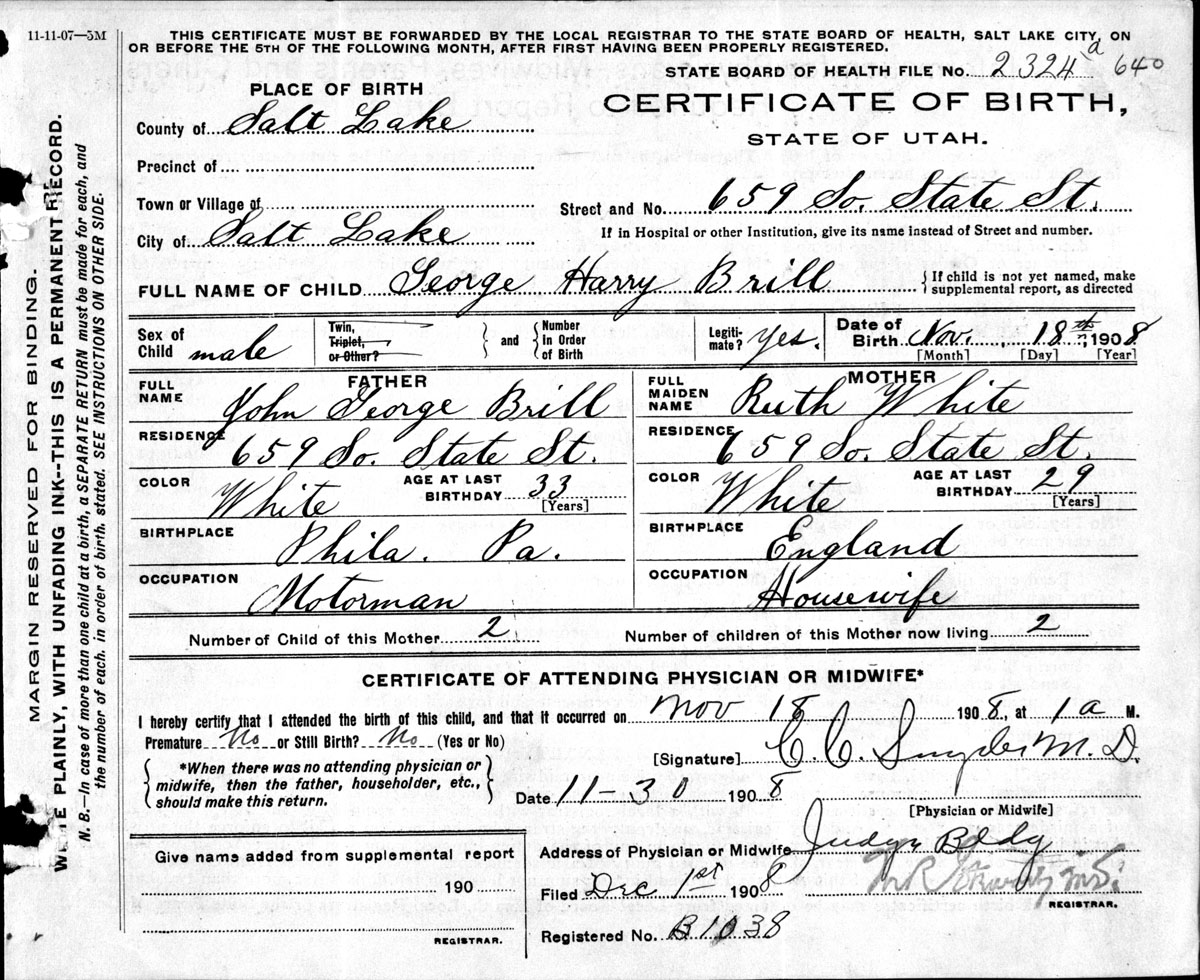 11-11-07—5M
THIS CERTIFICATE MUST BE FORWARDED BY THE LOCAL REGISTRAR TO THE STATE BOARD OF HEALTH, SALT LAKE CITY, ON
OR BEFORE THE 5TH OF THE FOLLOWING MONTH, AFTER FIRST HAVING BEEN PROPERLY REGISTERED.
STATE BOARD OF HEALTH FILE No. 2324 a 640
PLACE OF BIRTH
CERTIFICATE OF BIRTH,
STATE OF UTAH.
County of Salt Lake
Precinct of
Town or Village of
Street and No. 659 So. State St.
City of Salt Lake
If in Hospital or other Institution, give its name instead of Street and number.
FULL NAME OF CHILD George Harry Brill
If child is not yet named, make
supplemental report, as directed
Sex of Child male
Twin, Triplet, or Other?
and
Number in Order of Birth
Legiti-mate? Yes.
Date of Birth Nov. 18th, 1908
[Month] [Day] [Year]
FATHER
FULL NAME John George Brill
MOTHER
FULL MAIDEN NAME Ruth White
RESIDENCE 659 So. State St.
RESIDENCE 659 So. State St.
COLOR White AGE AT LAST BIRTHDAY 33 [Years]
COLOR White AGE AT LAST BIRTHDAY 29 [Years]
BIRTHPLACE Phila. Pa.
BIRTHPLACE England
OCCUPATION Motorman
OCCUPATION Housewife
Number of Child of this Mother 2
Number of children of this Mother now living 2
CERTIFICATE OF ATTENDING PHYSICIAN OR MIDWIFE*
I hereby certify that I attended the birth of this child, and that it occurred on Nov 18 1908, at 1 a M.
Premature No or Still Birth? No (Yes or No)
[Signature] C. C. Snyder M. D.
*When there was no attending physician or
midwife, then the father, householder, etc.,
should make this return.
Date 11-30 1908
[Physician or Midwife]
Address of Physician or Midwife Judge Bldg
Give name added from supplemental report
190
REGISTRAR.
Filed Dec 1st 1908
REGISTRAR.
Registered No. B1038
MARGIN RESERVED FOR BINDING.
WRITE PLAINLY, WITH UNFADING INK--THIS IS A PERMANENT RECORD.
N. B.—In case of more than one child at a birth, a SEPARATE RETURN must be made for each, and
the number of each, in order of birth, stated. SEE INSTRUCTIONS ON OTHER SIDE.